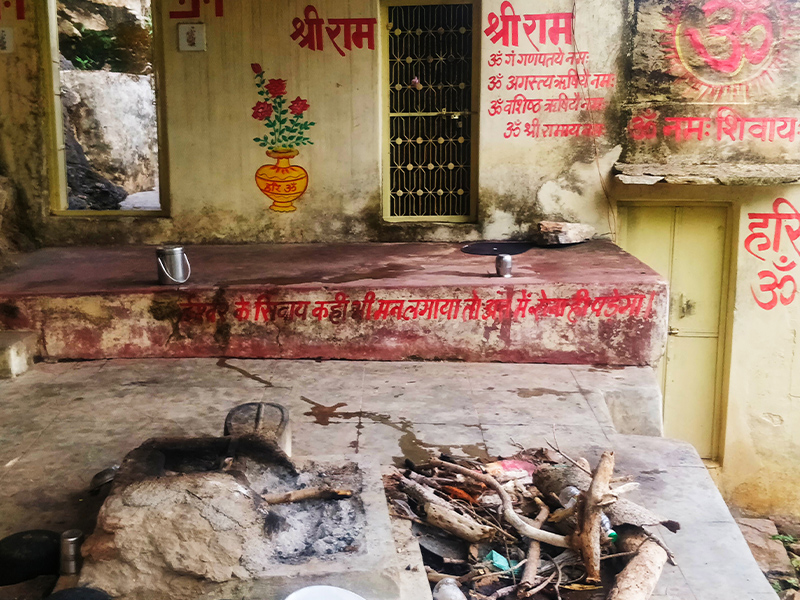 श्री राम
श्री राम
ॐ गं गणपतये नमः
ॐ अगस्त्य ऋषियै नमः
ॐ वशिष्ठ ऋषियै नमः
ॐ श्री रामाय नमः
ॐ
ॐ नमः शिवाय
हरि
ॐ
हरि ॐ
के सिवाय कहीं भी मन लगाया तो अन्त में रोना ही पड़ेगा।